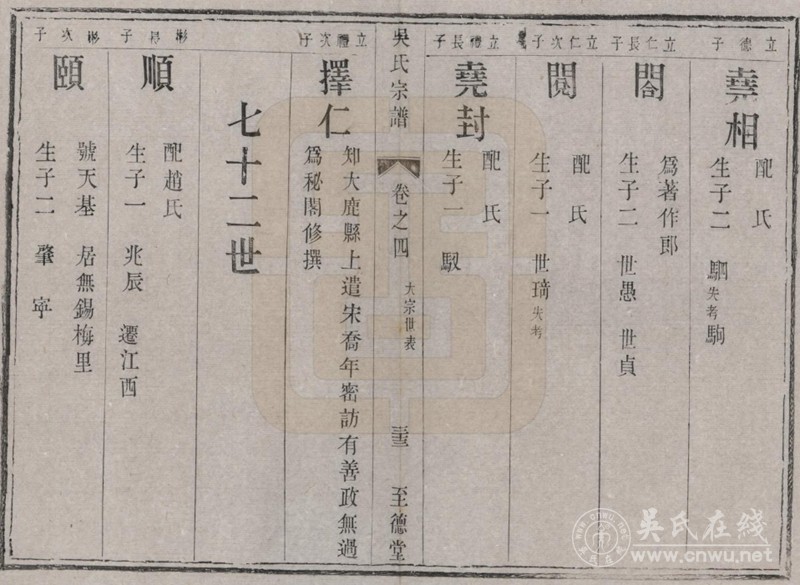 立德子
堯相
配 氏
生子二 駟失考 駒
立仁長子
閤
爲著作郎
生子二 世愚 世貞
立仁次子
閱
配 氏
生子一 世琦失考
立禮長子
堯封
配 氏
生子一 馭
吳氏宗譜 卷之四 大宗世表 至德堂
立禮次子
擇仁
知大鹿縣上遣宋喬年密訪有善政無過
爲秘閣修撰
七十二世
子
順
配趙氏
生子一 兆辰 遷江西
彬次子
頤
號天基 居無錫梅里
生子二 肇 寧
吳氏在线
www.cnwu.net